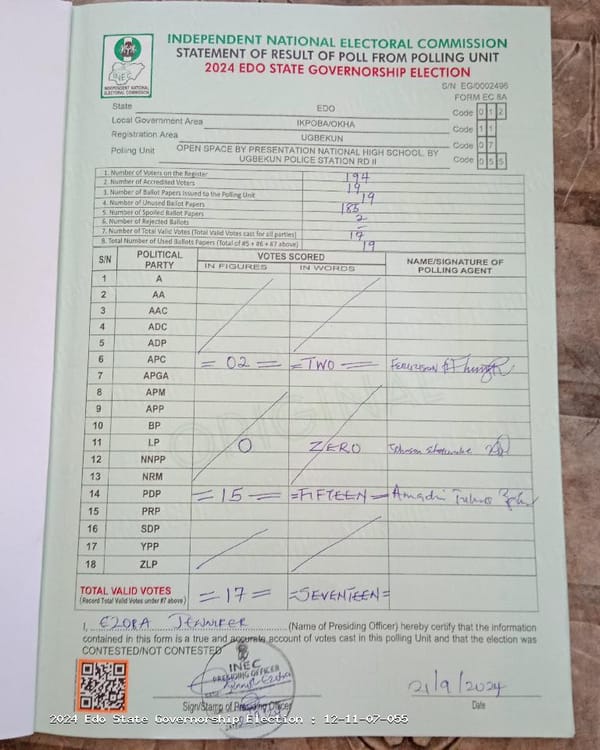 INDEPENDENT NATIONAL ELECTORAL COMMISSION
STATEMENT OF RESULT OF POLL FROM POLLING UNIT
2024 EDO STATE GOVERNORSHIP ELECTION
INEC
INDEPENDENT NATIONAL ELECTORAL COMMISSION
S/N EG/0002496
FORM EC 8A
State EDO Code 0 1 2
Local Government Area IKPOBA/OKHA Code 1 1
Registration Area UGBEKUN Code 0 7
Polling Unit OPEN SPACE BY PRESENTATION NATIONAL HIGH SCHOOL. BY UGBEKUN POLICE STATION RD II Code 0 5 5
1. Number of Voters on the Register 194
2. Number of Accredited Voters 19
3. Number of Ballot Papers Issued to the Polling Unit
4. Number of Unused Ballot Papers
5. Number of Spoiled Ballot Papers 2
6. Number of Rejected Ballots =
7. Number of Total Valid Votes (Total Valid Votes cast for all parties) 17
8. Total Number of Used Ballots Papers (Total of #5 + #6 + #7 above) 19
S/N POLITICAL PARTY VOTES SCORED NAME/SIGNATURE OF POLLING AGENT
IN FIGURES IN WORDS
1 A
2 AA
3 AAC
4 ADC
5 ADP
6 APC = 02 = = TWO =
7 APGA
8 APM
9 APP
10 BP
11 LP 0 ZERO
12 NNPP
13 NRM
14 PDP = 15 = =FIFTEEN=
15 PRP
16 SDP
17 YPP
18 ZLP
ORIGINAL
TOTAL VALID VOTES = 17 = =SEVENTEEN=
(Record Total Valid Votes under #7 above)
I, EZORA JENNIFER (Name of Presiding Officer) hereby certify that the information
contained in this form is a true and accurate account of votes cast in this polling Unit and that the election was
CONTESTED/NOT CONTESTED
INEC
PRESIDING OFFICER
21/9/2024
Sign/Stamp of Presiding Officer Date
2024 Edo State Governorship Election : 12-11-07-055